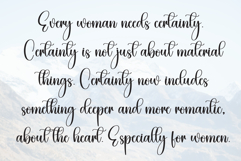 Every woman needs certainty.
Certainty is not just about material
things. Certainty now includes
something deeper and more romantic,
about the heart. Especially for women.